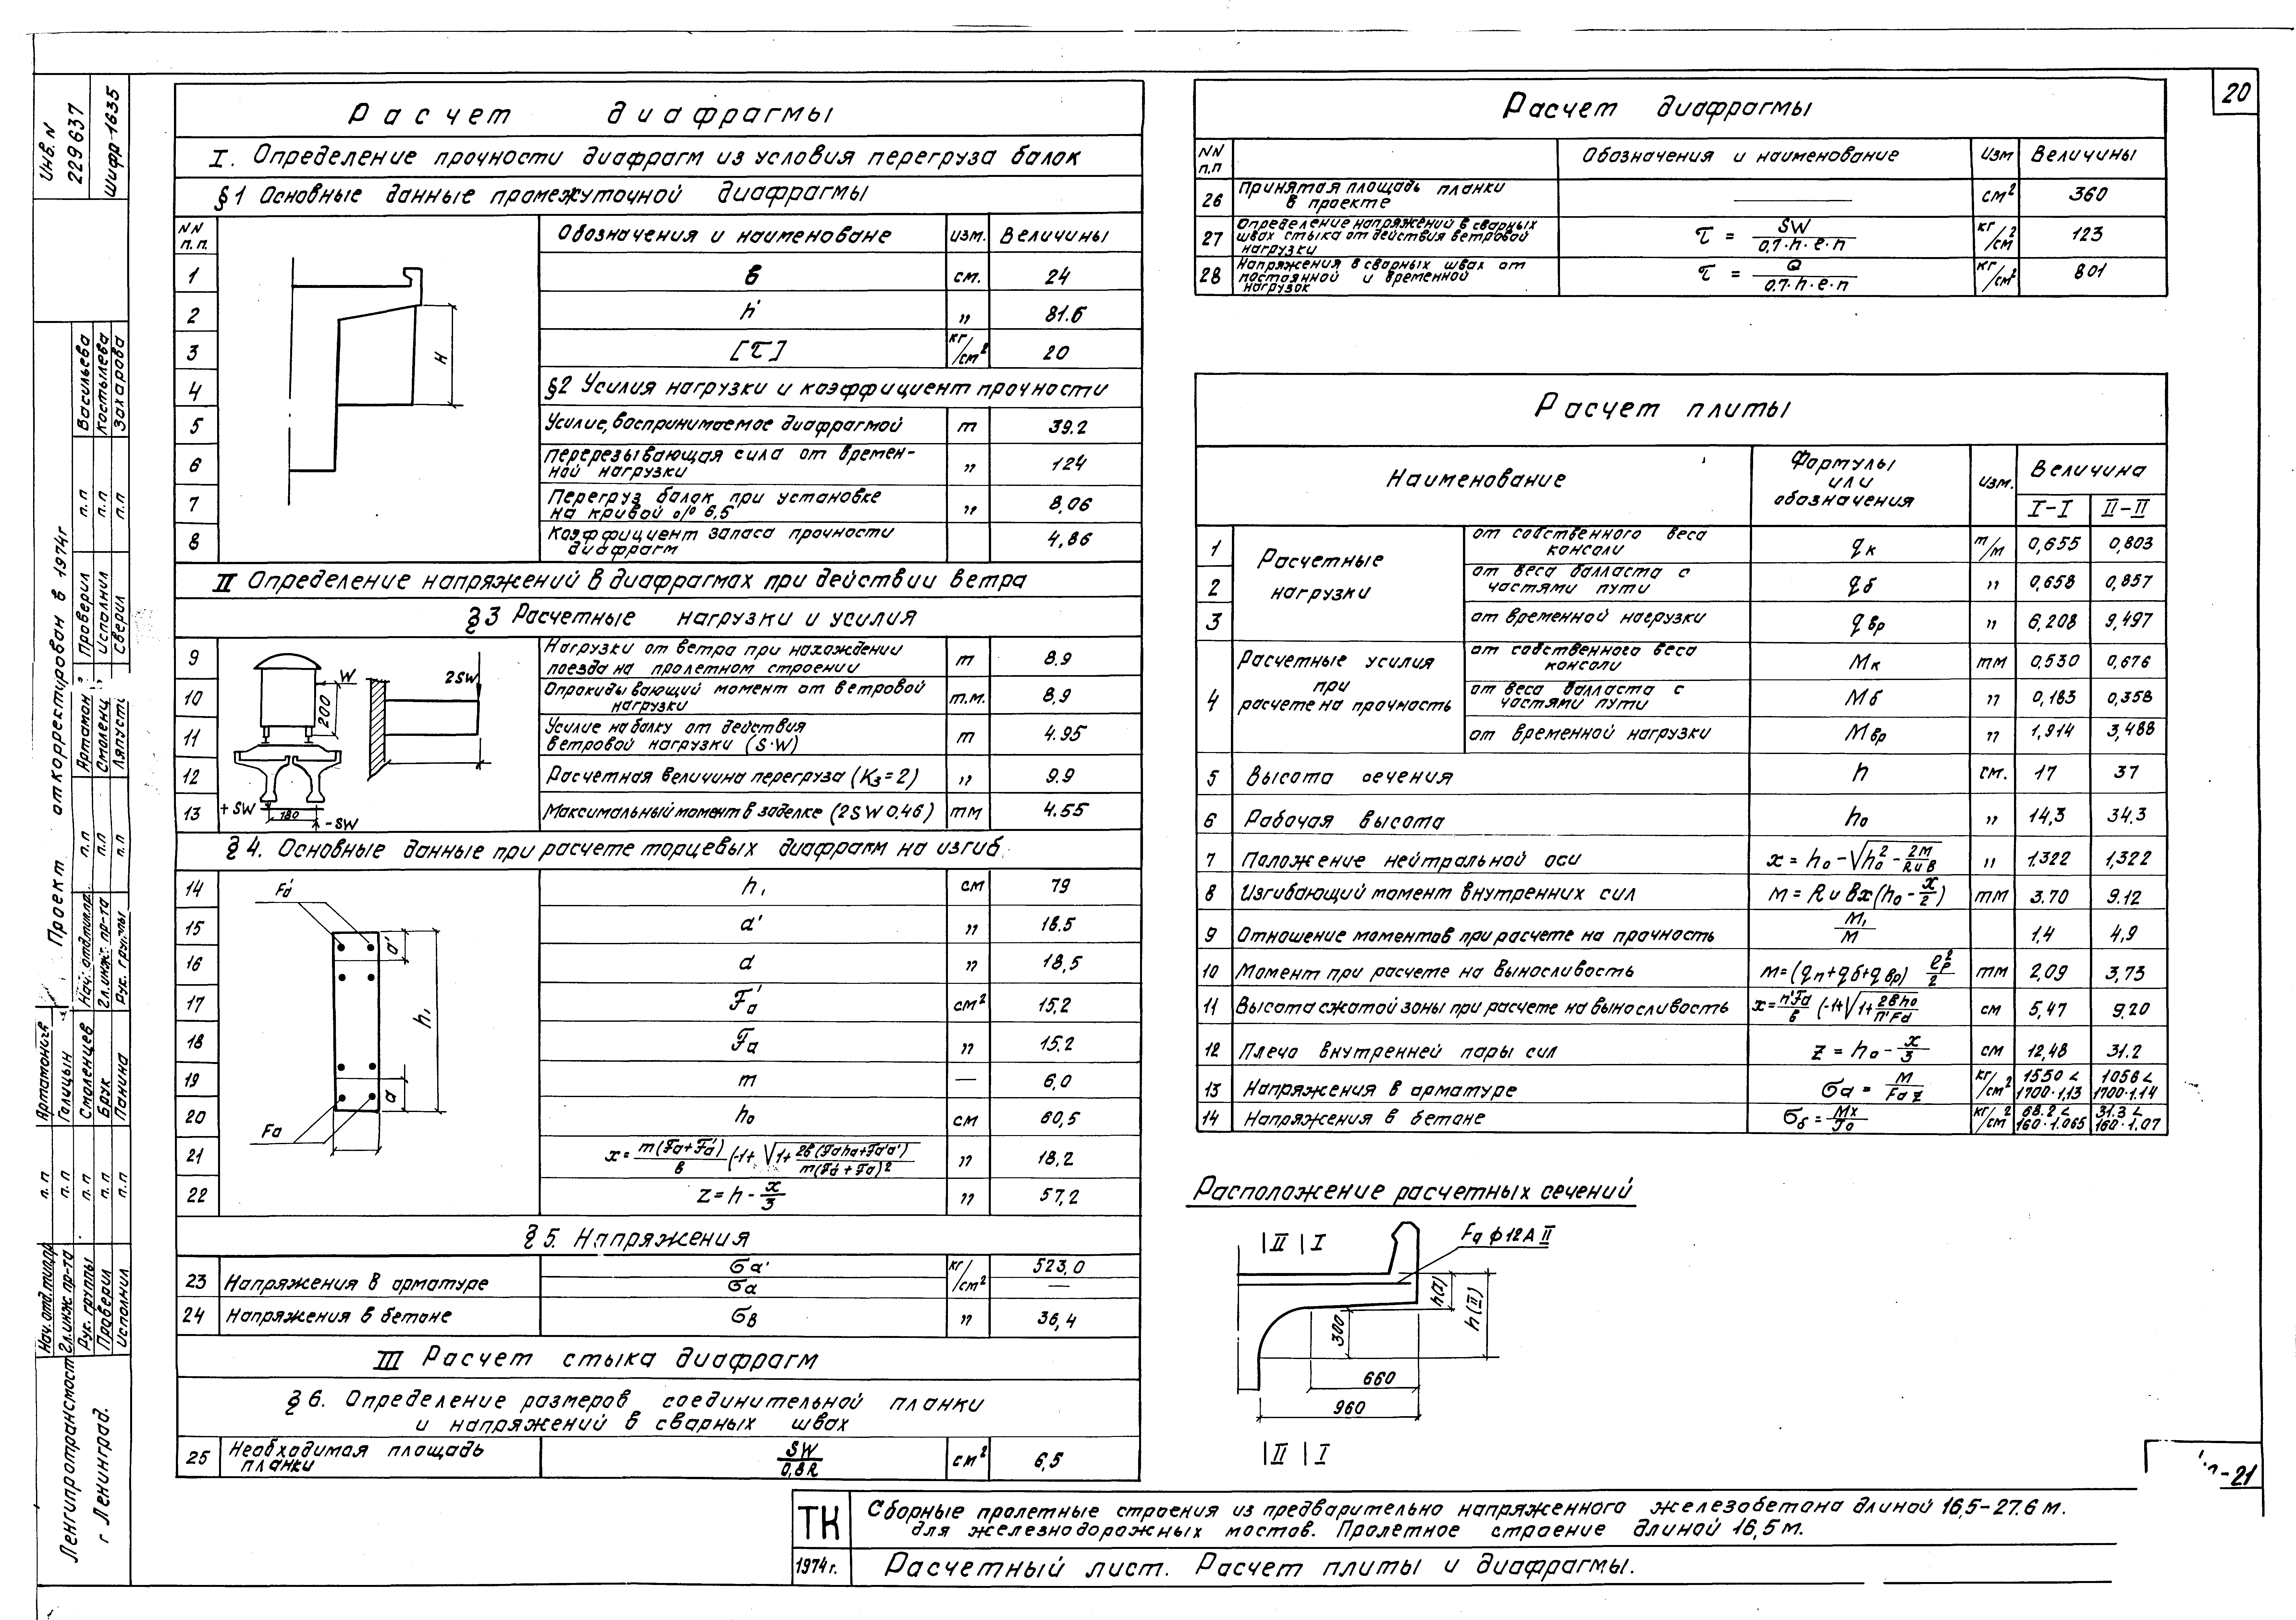 20
Инв. N
229637
Шифр-1635
Проект откорректирован в 1974г
Проверил п.п Васильева
Исполнил п.п Костылева
Сверил п.п Захарова
Нач. отд.тип.пр. п.п Артамонов
Гл.инж. пр-та п.п Голицын
Рук. группы п.п Смоленцев
Проверил п.п Брук
Исполнил п.п Панина
Нач. отд.тип.пр. п.п
Гл.инж. пр-та п.п
Рук. группы п.п
Ленгипротрансмост
г Ленинград.
Расчет диафрагмы
I. Определение прочности диафрагм из условия перегруза балок
§1 Основные данные промежуточной диафрагмы
NN п.п. Обозначения и наименоване изм. Величины
1 в см. 24
2 h' " 81.6
3 [τ] кг/см² 20
4 §2 Усилия нагрузки и коэффициент прочности
5 Усилие, воспринимаемое диафрагмой т 39.2
6 перерезывающая сила от времен-
ной нагрузки " 124
7 Перегруз балок при установке
на кривой о/о 6,5 " 8,06
8 Коэффициент запаса прочности
диафрагм 4,86
H
II Определение напряжений в диафрагмах при действии ветра
§3 Расчетные нагрузки и усилия
9 Нагрузки от ветра при нахождении
поезда на пролетном строении т 8.9
10 Опрокидывающий момент от ветровой
нагрузки т.м. 8,9
11 Усилие на балку от действия
ветровой нагрузки (S·W) т 4.95
12 Расчетная величина перегруза (K₃=2) " 9.9
13 Максимальный момент в заделке (2SW0.46) тм 4.55
W
200
2SW
+SW
180
-SW
§4. Основные данные при расчете торцевых диафрагм на изгиб.
14 h₁ см 79
15 a' " 18.5
16 a " 18,5
17 Fa' см² 15,2
18 Fa " 15.2
19 m — 6,0
20 h₀ см 60,5
21 x = m(Fa+Fa')/в (-1+√1+2в(Faha+Fa'a')/m(Fa'+Fa)²) " 18,2
22 Z=h-x/3 " 57,2
Fa'
a'
h₁
a
Fa
§5. Напряжения
23 Напряжения в арматуре σa' кг/см² 523,0
σa —
24 Напряжения в бетоне σв " 36,4
III Расчет стыка диафрагм
§6. Определение размеров соединительной планки
и напряжений в сварных швах
25 Необходимая площадь
планки SW/0,8R см² 6,5
Расчет диафрагмы
NN п.п Обозначения и наименование Изм Величины
26 Принятая площадь планки
в проекте — см² 360
27 Определение напряжений в сварных
швах стыка от действия ветровой
нагрузки τ = SW/0,7·h·e·n кг/см² 123
28 Напряжения в сварных швах от
постоянной и временной
нагрузок τ = Q/0.7·h·e·n кг/см² 801
Расчет плиты
Наименование Формулы или обозначения изм. Величина
I-I II-II
Расчетные нагрузки
1 от собственного веса
консоли qк т/м 0,655 0,803
2 от веса балласта с
частями пути qб " 0,658 0,857
3 от временной нагрузки qвр " 6,208 9,497
4 Расчетные усилия
при
расчете на прочность
от собственного веса
консоли Мк тм 0,530 0,676
от веса балласта с
частями пути Мб " 0,183 0,358
от временной нагрузки Мвр " 1,914 3,488
5 Высота сечения h см. 17 37
6 Рабочая высота h₀ " 14,3 34.3
7 Положение нейтральной оси x = h₀-√h₀²-2M/Rив " 1.322 1,322
8 Изгибающий момент внутренних сил M = Rивx(h₀-x/2) тм 3.70 9.12
9 Отношение моментов при расчете на прочность M₁/M 1,4 4,9
10 Момент при расчете на выносливость м=(qп+qб+qвр) ℓр²/2 тм 2,09 3,73
11 Высота сжатой зоны при расчете на выносливость x=n'Fa/в (-1+√1+2вh₀/n'Fa см 5,47 9.20
12 Плечо внутренней пары сил Z = h₀-x/3 см 12,48 31.2
13 Напряжения в арматуре σa = M/Fa z кг/см² 1550< 1700·1,13 1056< 1700·1.14
14 Напряжения в бетоне σб = Mx/J₀ кг/см² 68.2< 160·1.065 31.3< 160·1.07
Расположение расчетных сечений
II I
Fa ф12A II
h(I)
h(II)
300
660
960
II I
-21
ТК
1974г.
Сборные пролетные строения из предварительно напряженного железобетона длиной 16,5-27.6 м.
для железнодорожных мостов. Пролетное строение длиной 16,5м.
Расчетный лист. Расчет плиты и диафрагмы.